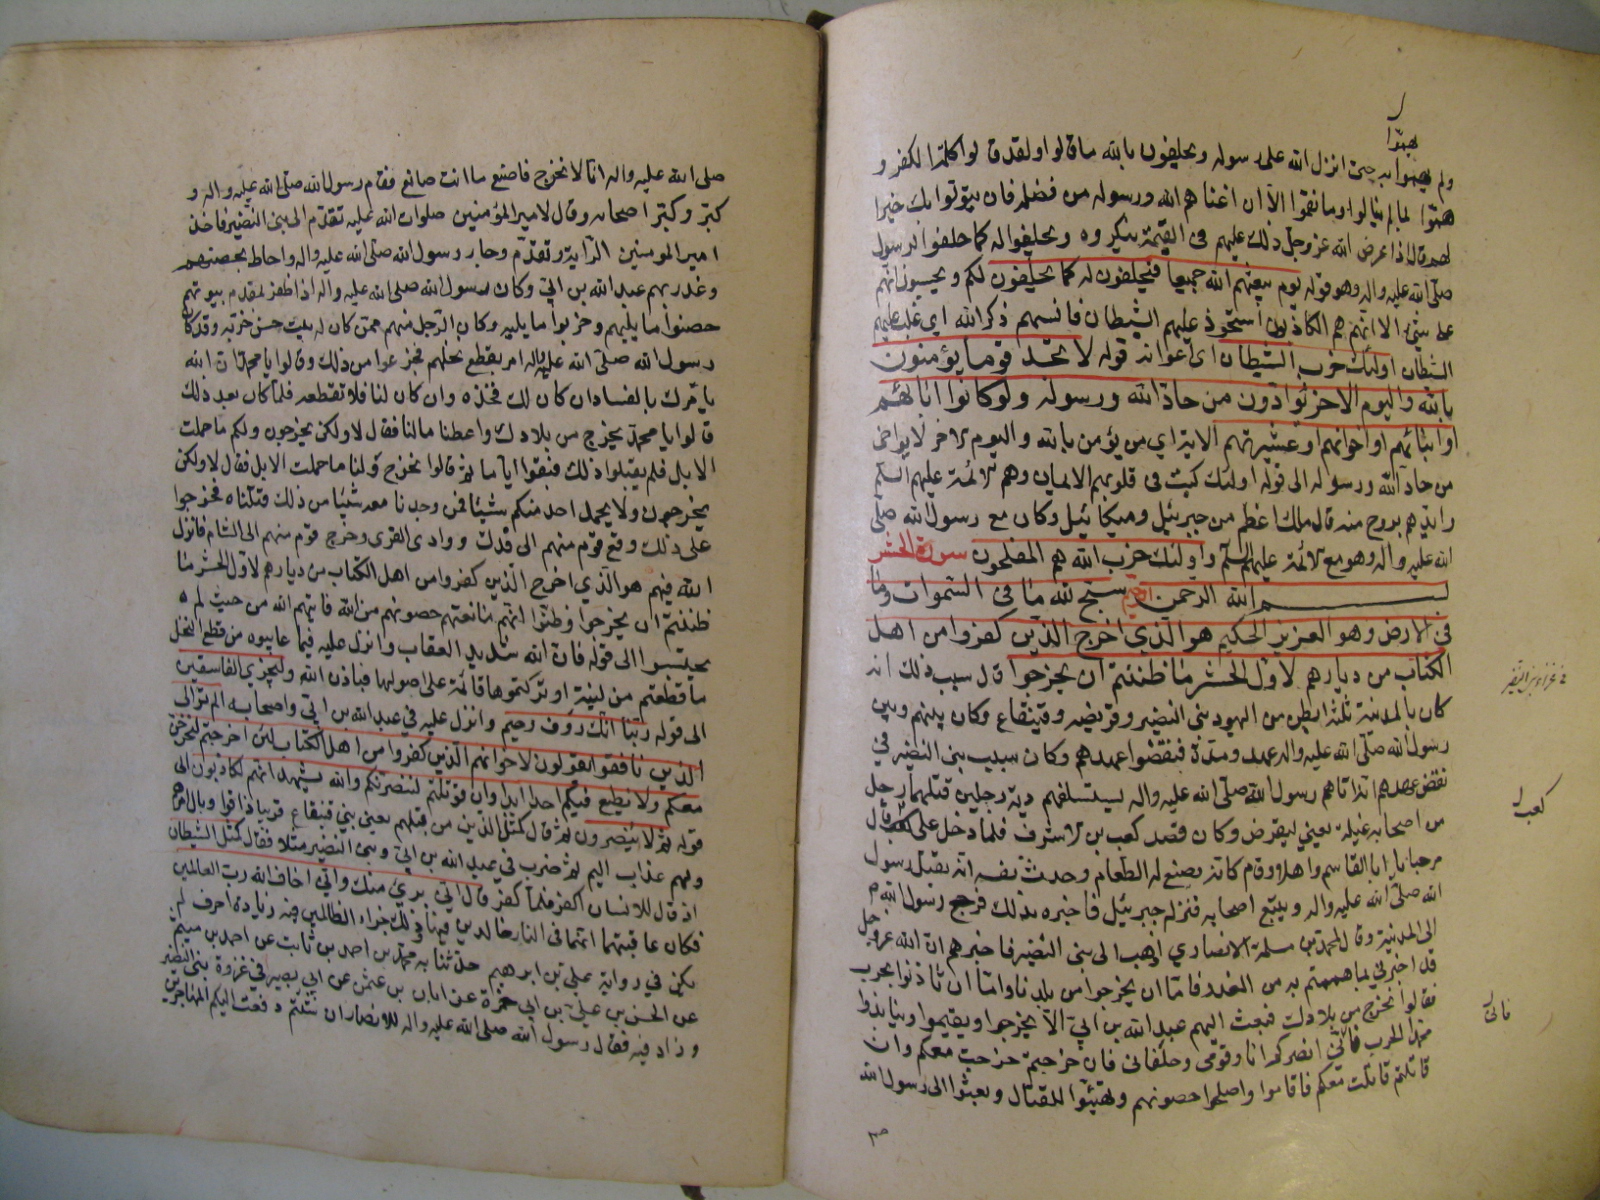 بهمّوا
ولم يهموا به حتى انزل الله على رسوله ويحلفون بالله ما قالوا ولقد قالوا كلمة الكفر و
همّوا بما لم ينالوا وما نقموا الا ان اغناهم الله ورسوله من فضله فان يتوبوا يك خيرا
لهم قال اذا عرض الله عز وجل ذلك عليهم في القيمة ينكروه ويحلفوا له كما حلفوا لرسول
صلى الله عليه واله وهو قوله يوم يبعثهم الله جميعا فيحلفون له كما يحلفون لكم ويحسبون انهم
على شئ الا انهم هم الكاذبون استحوذ عليهم الشيطان فانسهم ذكر الله اي غلب عليهم
الشيطان اولئك حزب الشيطان اي اعوانه قوله لا تجد قوما يؤمنون
بالله واليوم الاخر يوادون من حاد الله ورسوله ولو كانوا ابائهم
او ابنائهم او اخوانهم او عشيرتهم الاية اي من يؤمن بالله واليوم الاخر لا يواخي
من حاد الله ورسوله الى قوله اولئك كتب في قلوبهم الايمان وهم الائمة عليهم السلم
وايدهم بروح منه قال ملك اعظم من جبرئيل وميكائيل وكان مع رسول الله صلى
الله عليه واله وهو مع الائمة عليهم السلم واولئك حزب الله هم المفلحون سورة الحشر
بسم الله الرحمن الرحيم سبح لله ما في السموات وما
في الارض وهو العزيز الحكيم هو الذي اخرج الذين كفروا من اهل
الكتاب من ديارهم لاول الحشر ما ظننتم ان يخرجوا قال سبب ذلك انه
في غزاء بني النضير
كان بالمدينة ثلثة ابطن من اليهود بني النضير وقريضه وقينقاع وكان بينهم وبين
رسول الله صلى الله عليه واله عهد ومدة فنقضوا عهدهم وكان سبب بني النضير في
نقض عهدهم انه اتاهم رسول الله صلى الله عليه واله يستسلفهم دية رجلين قتلهما رجل
كعب
من اصحابه غيلة يعني ليقرض وكان قصد كعب بن الاشرف فلما دخل على كعب قال
مرحبا يا ابا القاسم واهلا وقام كانه يصنع له الطعام وحدث نفسه انه يقتل رسول
الله صلى الله عليه واله ويتبع اصحابه فنزل جبرئيل فاخبره بذلك فرجع رسول الله ص
الى المدينة وقال لمحمد بن مسلمة الانصاري اذهب الى بني النضير فاخبرهم ان الله عز وجل
قد اخبرني بما هممتم به من الغدر فاما ان يخرجوا من بلدنا واما ان تاذنوا بحرب
فقالوا نخرج من بلادك فبعث اليهم عبد الله بن ابي الا يخرجوا ويقيموا وينابذوا
فاني
محمدا الحرب فاني انصركم انا وقومي وحلفائي فان خرجتم خرجت معكم وان
قاتلتم قاتلت معكم فاقاموا واصلحوا حصونهم وتهيئوا للقتال وبعثوا الى رسول الله
ص
صلى الله عليه واله انا لا نخرج فاصنع ما انت صانع فقام رسول الله صلى الله عليه واله و
كبر وكبر اصحابه وقال لامير المؤمنين صلوات الله عليه تقدم الى بني النضير فاخذ
امير المومنين الراية وتقدم وجاء رسول الله صلى الله عليه واله واحاط بحصنهم
وغدر بهم عبد الله بن ابي وكان رسول الله صلى الله عليه واله اذا ظفر بمقدم بيوتهم
حصنوا ما يليهم وخربوا ما يليه وكان الرجل منهم ممن كان له بيت حسن خربه وقد كان
رسول الله صلى الله عليه واله امر بقطع نخلهم فجزعوا من ذلك وقالوا يا محمد ان الله
يامرك بالفساد ان كان لك فخذه وان كان لنا فلا تقطعه فلما كان بعد ذلك
قالوا يا محمد نخرج من بلادك واعطنا مالنا فقال لا ولكن تخرجون ولكم ما حملت
الابل فلم يقبلوا ذلك فبقوا اياما ثم قالوا نخرج ولنا ما حملت الابل فقال لا ولكن
يخرجون ولا يحمل احد منكم شيئا فمن وجدنا معه شيئا من ذلك قتلناه فخرجوا
على ذلك وقع قوم منهم الى فدك ووادي القرى وخرج قوم منهم الى الشام فانزل
الله فيهم هو الذي اخرج الذين كفروا من اهل الكتاب من ديارهم لاول الحشر ما
ظننتم ان يخرجوا وظنوا انهم مانعتهم حصونهم من الله فاتيهم الله من حيث لم
يحتسبوا الى قوله فان الله شديد العقاب وانزل عليه فيما عابوه من قطع النخل
ما قطعتم من لينة او تركتموها قائمة على اصولها فباذن الله وليجزي الفاسقين
الى قوله ربنا انك رؤف رحيم وانزل عليه في عبد الله بن ابي واصحابه الم تر الى
الذين نافقوا يقولون لاخوانهم الذين كفروا من اهل الكتاب لئن اخرجتم لنخرجن
معكم ولا نطيع فيكم احدا ابدا وان قوتلتم لننصرنكم والله يشهد انهم لكاذبون الى
قوله ثم لا ينصرون ثم قال كمثل الذين من قبلهم يعني بني قينقاع قريبا ذاقوا وبال امرهم
ولهم عذاب اليم ثم ضرب في عبد الله بن ابي وبني النضير مثلا فقال كمثل الشيطان
اذ قال للانسان اكفر فلما كفر قال اني بريئ منك واني اخاف الله رب العالمين
فكان عاقبتهما انهما في النار خالدين فيها وذلك جزاء الظالمين فيه زيادة احرف لم
يكن في رواية علي بن ابرهيم حدثنا به محمد بن احمد بن ثابت عن احمد بن ميثم
عن الحسن بن علي بن ابي حمزة عن ابان بن عثمن عن ابي بصير في غزوة بني النضير
وزاد فيه فقال رسول الله صلى الله عليه واله للانصار ان شئتم دفعت اليكم المهاجرين